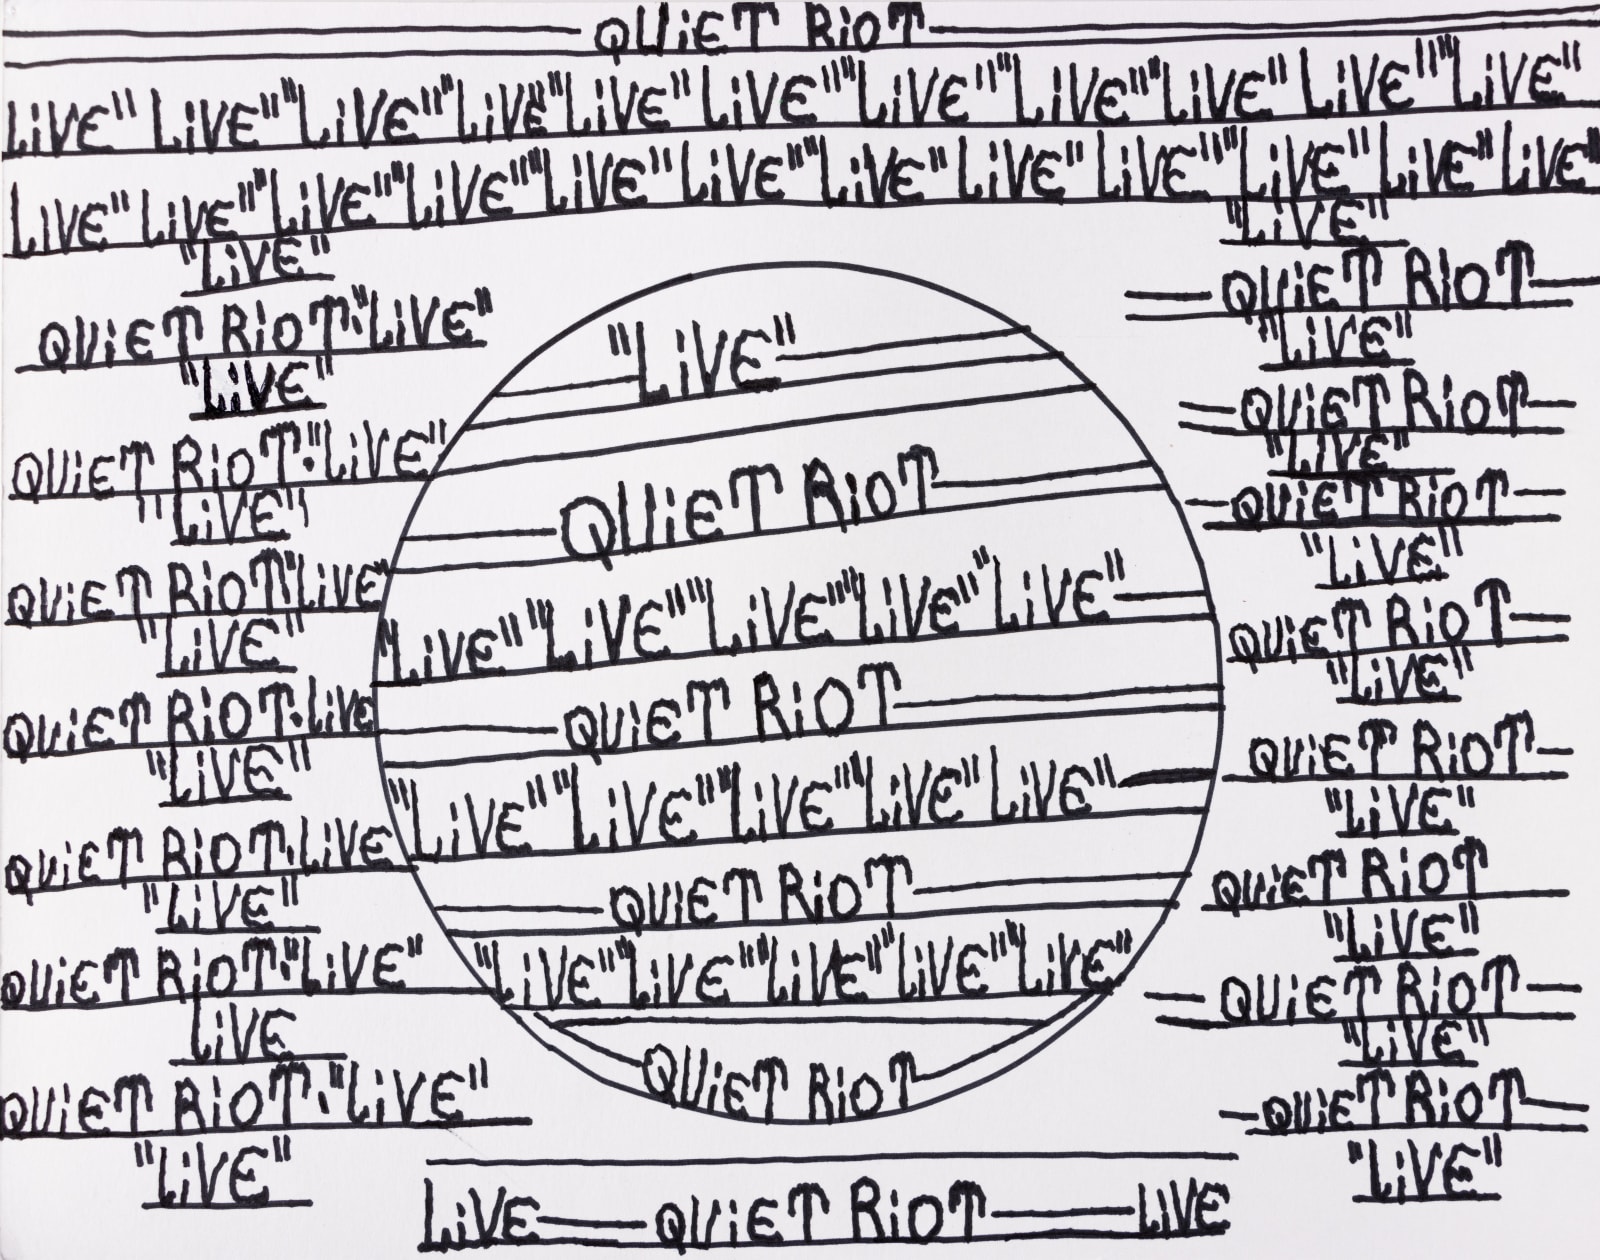 QUiET RiOT
LiVE" LiVE" "LiVE" "LiVE "LiVE" LiVE" "LiVE" "LiVE" "LiVE" LiVE" "LiVE"
LiVE" LiVE" "LiVE" "LiVE" "LiVE" LiVE" "LiVE" LiVE" LiVE" "LiVE" LiVE" LiVE"
"LiVE"
QUiET RiOT:"LiVE"
"LiVE"
QUiET RiOT:"LiVE"
"LiVE"
QUiET RiOT:"LiVE"
"LiVE"
QUiET RiOT:LiVE
"LiVE"
QUiET RiOT:LiVE
"LiVE"
QUiET RiOT:"LiVE"
LiVE
QUiET RiOT:"LiVE"
"LiVE"
"LiVE"
QUiET RiOT
"LiVE" "LiVE" "LiVE" "LiVE" "LiVE"
QUiET RiOT
"LiVE" "LiVE" "LiVE" "LiVE" LiVE"
QUiET RiOT
"LiVE" "LiVE" "LiVE" "LiVE" "LiVE"
QUiET RiOT
"LiVE"
QUiET RiOT
"LiVE"
QUiET RiOT
"LiVE"
QUiET RiOT
"LiVE"
QUiET RiOT
"LiVE"
QUiET RiOT
"LiVE"
QUiET RiOT
"LiVE"
QUiET RiOT
"LiVE"
QUiET RiOT
"LiVE"
LiVE QUiET RiOT LiVE